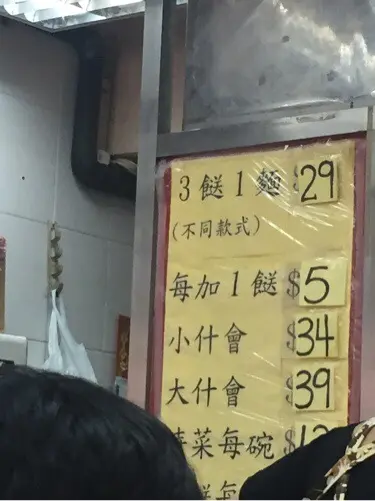 3餸1麵 $29
(不同款式)
每加1餸 $5
小什會 $34
大什會 $39
菜每碗